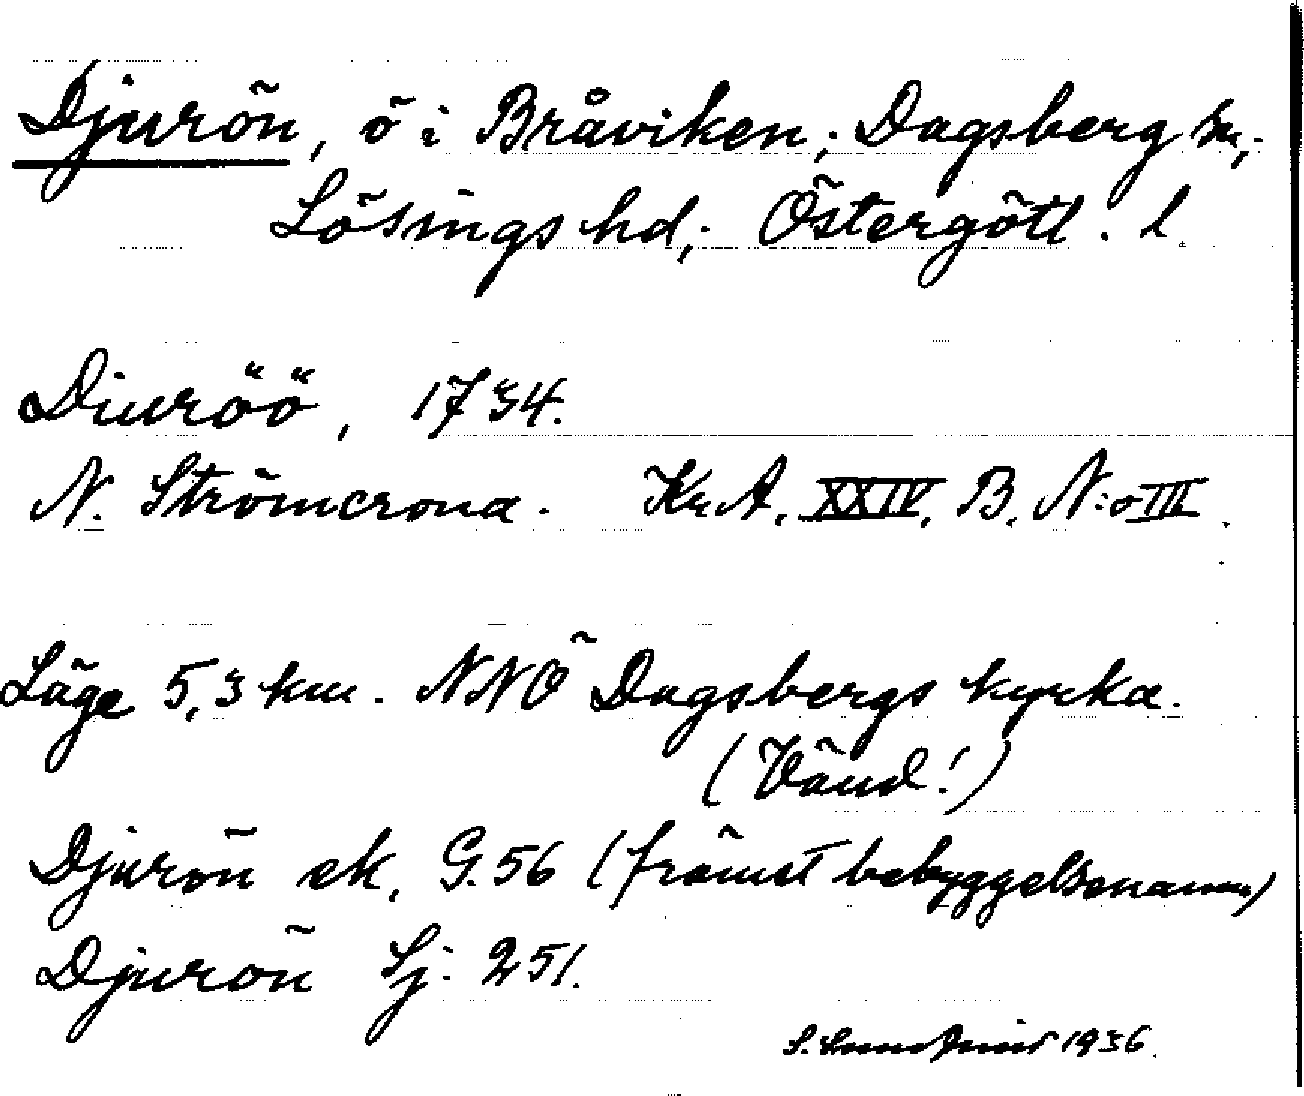 Djurön, ö i Bråviken; Dagsberg sn,;
Lösings hd,; Östergötl. l
Diuröö, 1734.
N. Strömcrona. Kr.A. XXIV. B. N:o III.
Läge 5,3 km. NNÖ Dagsbergs kyrka.
(Vänd!)
Djurön ek. G. 56 (främst bebyggelsenamn)
Djurön Sj. 251.
S. 1936.